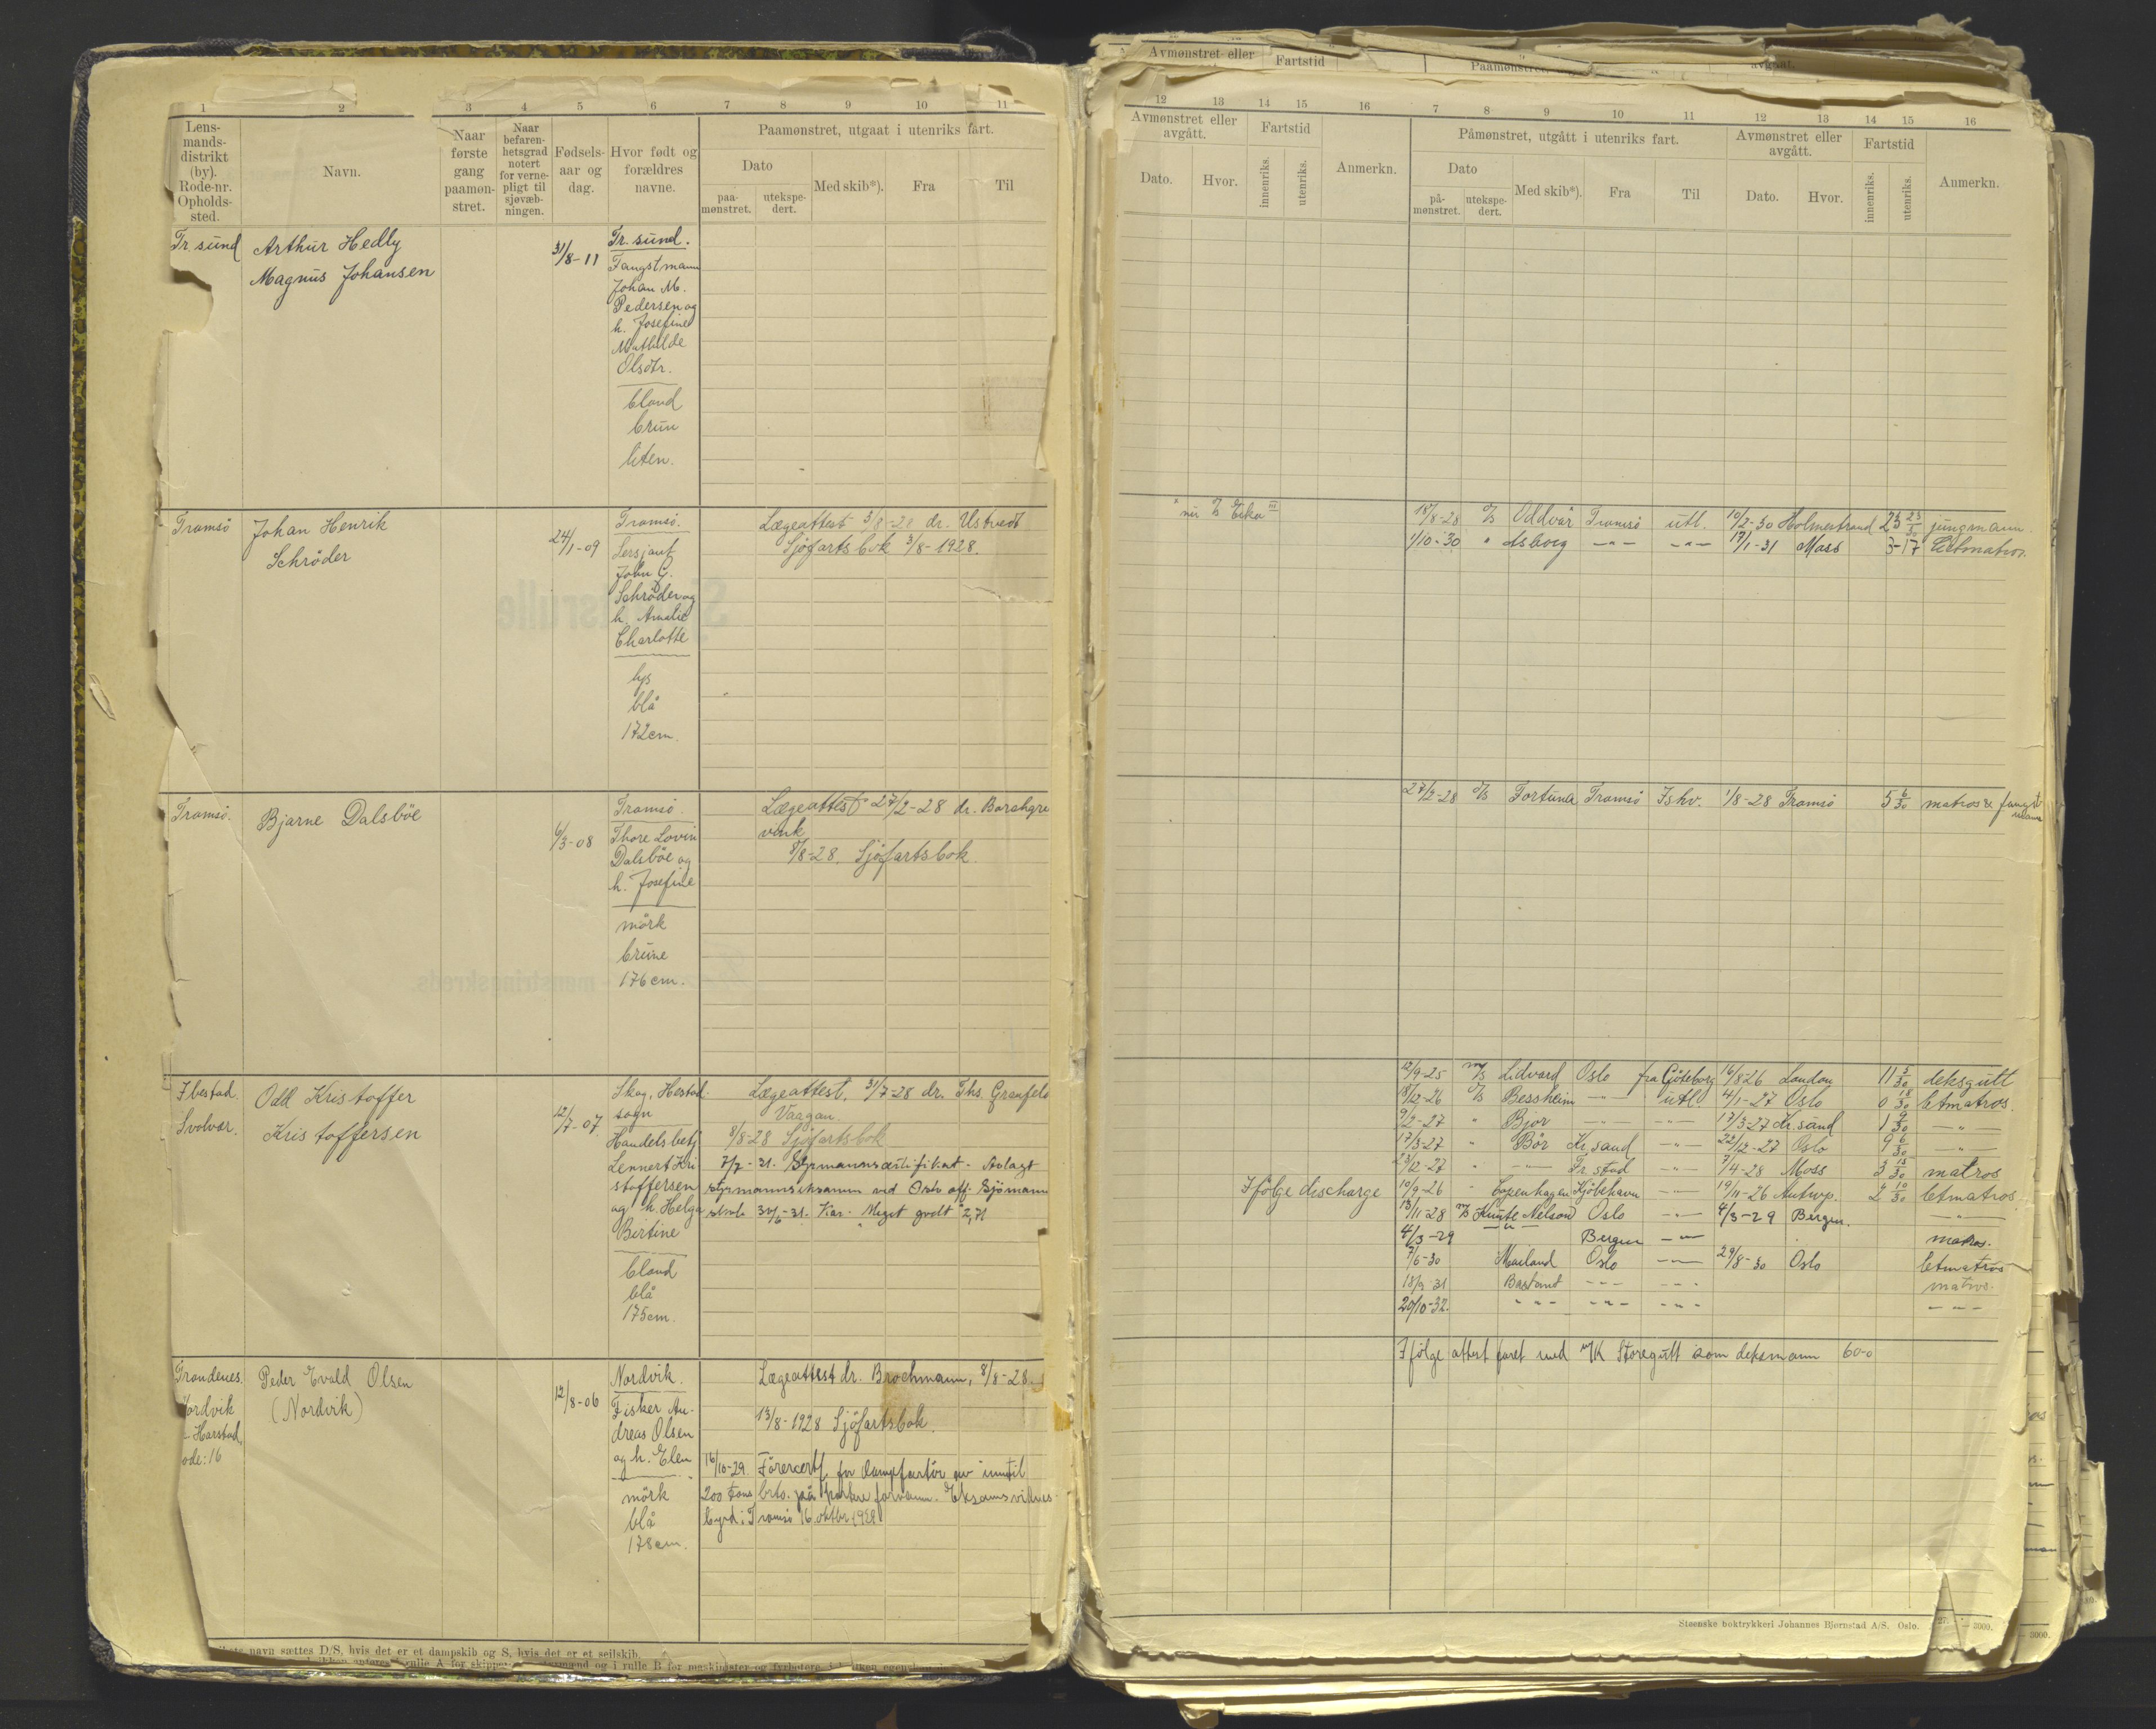 1 2 3 4 5 6 7 8 9 10 11
Lens-
mands-
distrikt
(by).
Rode-nr.
Opholds-
sted.
Navn.
Naar
første
gang
paamøn-
stret.
Naar
befaren-
hetsgrad
notert
for verne-
pligt til
sjøvæb-
ningen.
Fødsels-
aar og
dag.
Hvor født og
forældres
navne.
Paamønstret, utgaat i utenriks fart.
Dato
paa-
mønstret.
utekspe-
dert.
Med skib*).
Fra
Til
Tr. sund
Arthur Hedly
Magnus Johansen
31/8-11
Tr. sund.
Fangstmann
Johan M.
Pedersen og
h. Josefine
Mathilde
Olsdtr.
blond
brun
liten.
Tromsö
Johan Henrik
Schröder
24/1-09
Tromsö.
Sersjant
John G.
Schröder og
h. Amalie
Charlotte
lys
blå
172 cm.
Lægeattest 3/8-28 dr. Ustvedt
Sjöfartsbok 3/8-1928.
Tromsö.
Bjarne Dalsböe
6/3-08
Tromsö.
Thore Lovin
Dalsböe og
h. Josefine
mörk
brune
176 cm.
Lægeattest 27/2-28 dr. Borchgre
vink
8/8-28. Sjöfartsbok.
Ibestad.
Svolvær.
Odd Kristoffer
Kristoffersen
12/7-07
Skog, Hestad.
sogn
Handelsbetj
Lennert Kri
stoffersen
og h. Helga
Birtine
blond
blå
175 cm.
Lægeattest. 31/7-28 dr. Ths. Grenfeld
Vargan.
8/8-28 Sjöfartsbok
7/7-31. Styrmannscertifikat - Avlagt
styrmannseksamen ved Oslo off. Sjömann
skole 30/6-31. Kar. Meget godt 2,71
Trondenes.
Nordvik
- Harstad.
ode: 16
Peder Evald Olsen
(Nordvik)
12/8-06
Nordvik.
Fisker An-
dreas Olsen
og h. Elen
mörk
blå
178 cm.
Lægeattest dr. Brochmann, 8/8-28.
13/8-1928 Sjöfartsbok.
16/10-29. Förercertf. for dampfartöi av inntil
200 tons brto. på farvann. Eksamensvidnes-
byrd: Tromsö 16. oktbr. 1928
navn sættes D/S, hvis det er et dampskib og S, hvis det er et seilskib.
Avmønstret eller
Fartstid
12 13 14 15 16 7 8 9 10 11 12 13 14 15 16
Avmønstret eller
avgått.
Fartstid
Dato.
Hvor.
innenriks.
utenriks.
Anmerkn.
Påmønstret, utgått i utenriks fart.
Dato
på-
mønstret.
utekspe-
dert.
Med skib*).
Fra
Til
Avmønstret eller
avgått.
Dato.
Hvor.
Fartstid
innenriks.
utenriks.
Anmerkn.
18/8-28 D/S Oddvar Tromsö utl. 10/2-30 Holmestrand 23/30 jungmann
1/10-30 " Asborg -"- -"- 17/1-31 Moss 3-17 Letmatros
27/2-28 D/S Fortuna Tromsö Ishv. 1/8-28 Tromsö 5 6/30 matros & fangst
mann
12/9-25 M/S Lidvard Oslo fra Göteborg 16/8 26 London 11 5/30 deksgutt
18/12-26 D/S Bessheim -"- utl. 4/1-27 Oslo 0 18/30 letmatros.
9/2-27 " Bjor -"- -"- 17/3-27 Kr. sand 1 9/30 -"-
17/3-27 " Bör Kr. sand -"- 22/12-27 Oslo 9 6/30 -"-
23/12-27 " -"- Fr. stad -"- 7/4-28 Moss 3 15/30 matros
Ifölge discharge 10/9-26 " Copenhagen Kjöbehavn -"- 19/11-26 Antwp. 2 10/30 letmatros.
13/11-28 M/S Knute Nelson Oslo -"- 4/3-29 Bergen. -"-
4/3-29 -"- Bergen -"- matros.
7/6-30 Mailand Oslo -"- 29/8-30 Oslo letmatros
18/9-31 Bastant -"- -"- matros.
20/10-32. -"- -"- -"- -"-
Ifölge attest faret med M/K Storegutt som deksmann 60-0
Steenske boktrykkeri Johannes Bjørnstad A/S. Oslo.
27. - 3000.